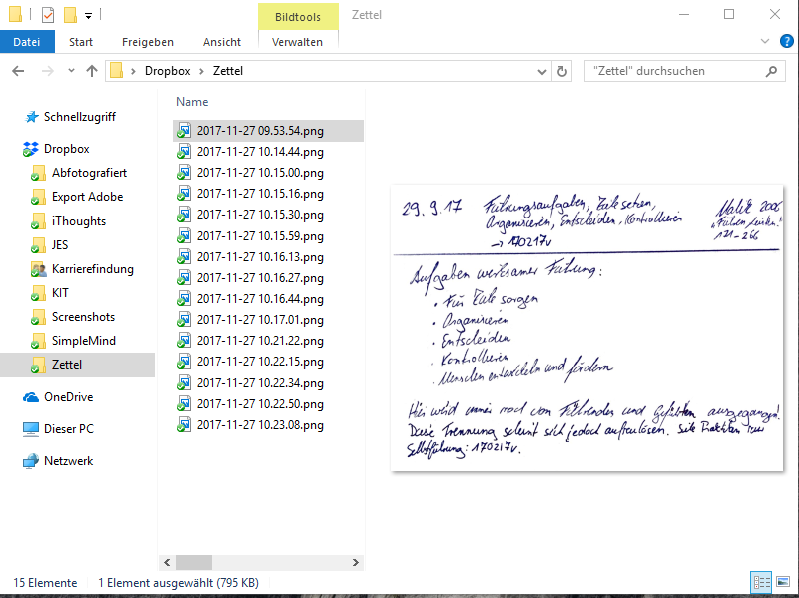 Bildtools
Zettel
Datei
Start
Freigeben
Ansicht
Verwalten
Dropbox
Zettel
"Zettel" durchsuchen
Schnellzugriff
Dropbox
Abfotografiert
Export Adobe
iThoughts
JES
Karrierefindung
KIT
Screenshots
SimpleMind
Zettel
OneDrive
Dieser PC
Netzwerk
Name
2017-11-27 09.53.54.png
2017-11-27 10.14.44.png
2017-11-27 10.15.00.png
2017-11-27 10.15.16.png
2017-11-27 10.15.30.png
2017-11-27 10.15.59.png
2017-11-27 10.16.13.png
2017-11-27 10.16.27.png
2017-11-27 10.16.44.png
2017-11-27 10.17.01.png
2017-11-27 10.21.22.png
2017-11-27 10.22.15.png
2017-11-27 10.22.34.png
2017-11-27 10.22.50.png
2017-11-27 10.23.08.png
29.9.17
Führungsaufgaben, Ziele setzen,
Organisieren, Entscheiden, Kontrollieren
→ 170217v
Malik 2006
"Führen
171-266
Aufgaben wirksamer Führung:
• Für Ziele sorgen
• Organisieren
• Entscheiden
• Kontrollieren
• Menschen entwickeln und fördern
Hier wird immer noch von Führenden und Geführten ausgegangen!
Diese Trennung scheint sich jedoch aufzulösen. Siehe zur
Selbstführung: 170217v.
15 Elemente
1 Element ausgewählt (795 KB)